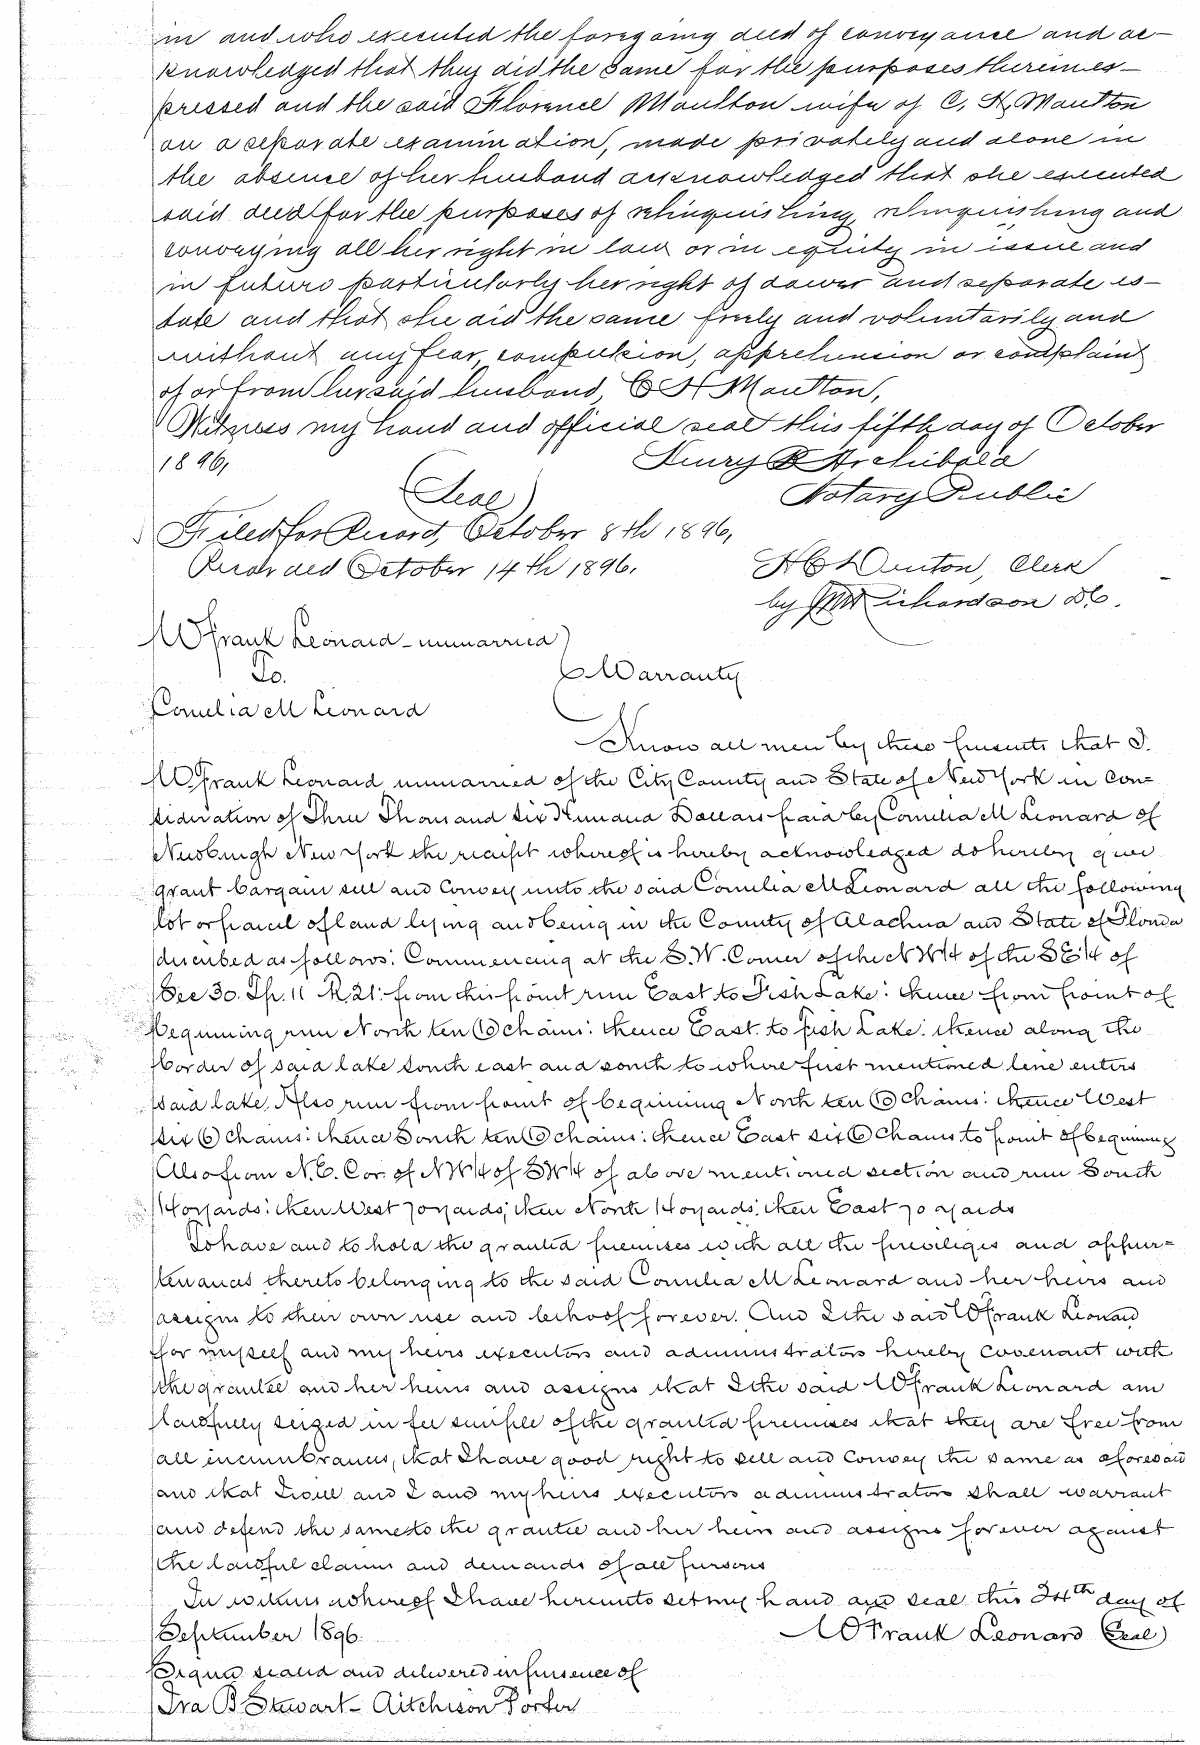 in and who executed the foregoing deed of conveyance and ac-
knowledged that they did the same for the purposes therein ex-
pressed and the said Florence Moulton wife of C. H. Moulton
on a separate examination, made privately and alone in
the absence of her husband acknowledged that she executed
said deed for the purposes of relinquishing, relinquishing and
conveying all her right in law or in equity in issue and
in futuro particularly her right of dower and separate es-
tate and that she did the same freely and voluntarily and
without any fear, compulsion, apprehension or complaint
of or from her said husband, C H Moulton,
Witness my hand and official seal this fifth day of October
1896,
Henry R Archibald
(Seal)
Notary Public
Filed for Record, October 8th 1896,
Recorded October 14th 1896.
H C Denton, Clerk
by Richardson D.C.
W Frank Leonard - unmarried
To.
Warranty
Cornelia M Leonard
Know all men by these presents that I.
W. Frank Leonard unmarried of the City County and State of New York in con=
sideration of Three Thousand six Hundred Dollars paid by Cornelia M Leonard of
Newburgh New York the reciept whereof is hereby acknowledged do hereby give
grant bargain sell and Convey unto the said Cornelia M Leonard all the following
lot or parcel of land lying and being in the County of Alachua and State of Florida
described as follows: Commencing at the S.W. Corner of the NW/4 of the SE/4 of
Sec 30. Tp. 11 R. 21: from this point run East to Fish Lake: thence from point of
beginning run North ten (10) chains: thence East to fish Lake: thence along the
border of said lake south east and south to where first mentioned line enters
said lake. Also run from point of beginning North ten (10) chains: thence West
six (6) chains: thence South ten (10) chains: thence East six (6) chains to point of beginning
Also from N.E. Cor. of NW/4 of SW/4 of above mentioned section and run South
140 yards: then West 70 yards; then North 140 yards: then East 70 yards
To have and to hold the granted premises with all the priviliges and appur=
tenances thereto belonging to the said Cornelia M Leonard and her heirs and
assigns to their own use and behoof forever. And I the said W Frank Leonard
for myself and my heirs executors and administrators hereby covenant with
the grantee and her heirs and assigns that I the said W Frank Leonard am
lawfully seized in fee simple of the granted premises that they are free from
all incumbrances, that I have good right to sell and convey the same as aforesaid
and that I will and I and my heirs executors administrators shall warrant
and defend the same to the grantee and her heirs and assigns forever against
the lawful claims and demands of all persons
In witness whereof I have hereunto set my hand and seal this 24th day of
September 1896.
W Frank Leonard (Seal)
Signed sealed and delivered in presence of
Ira B Stewart - Aitchison Porter